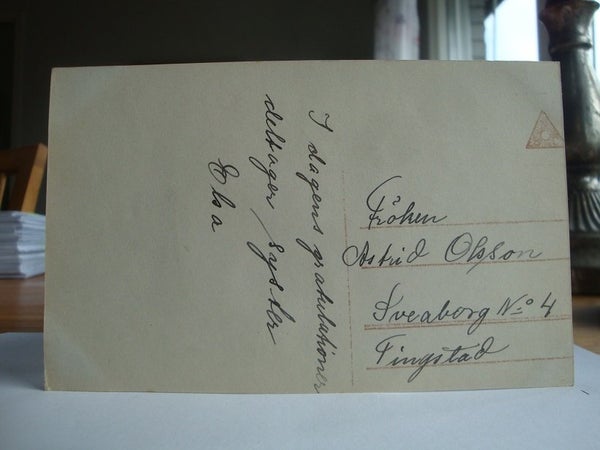 I dagens gratulationer
deltager syster
Elsa
Fröken
Astrid Olsson
Sveaborg No 4
Tingstad